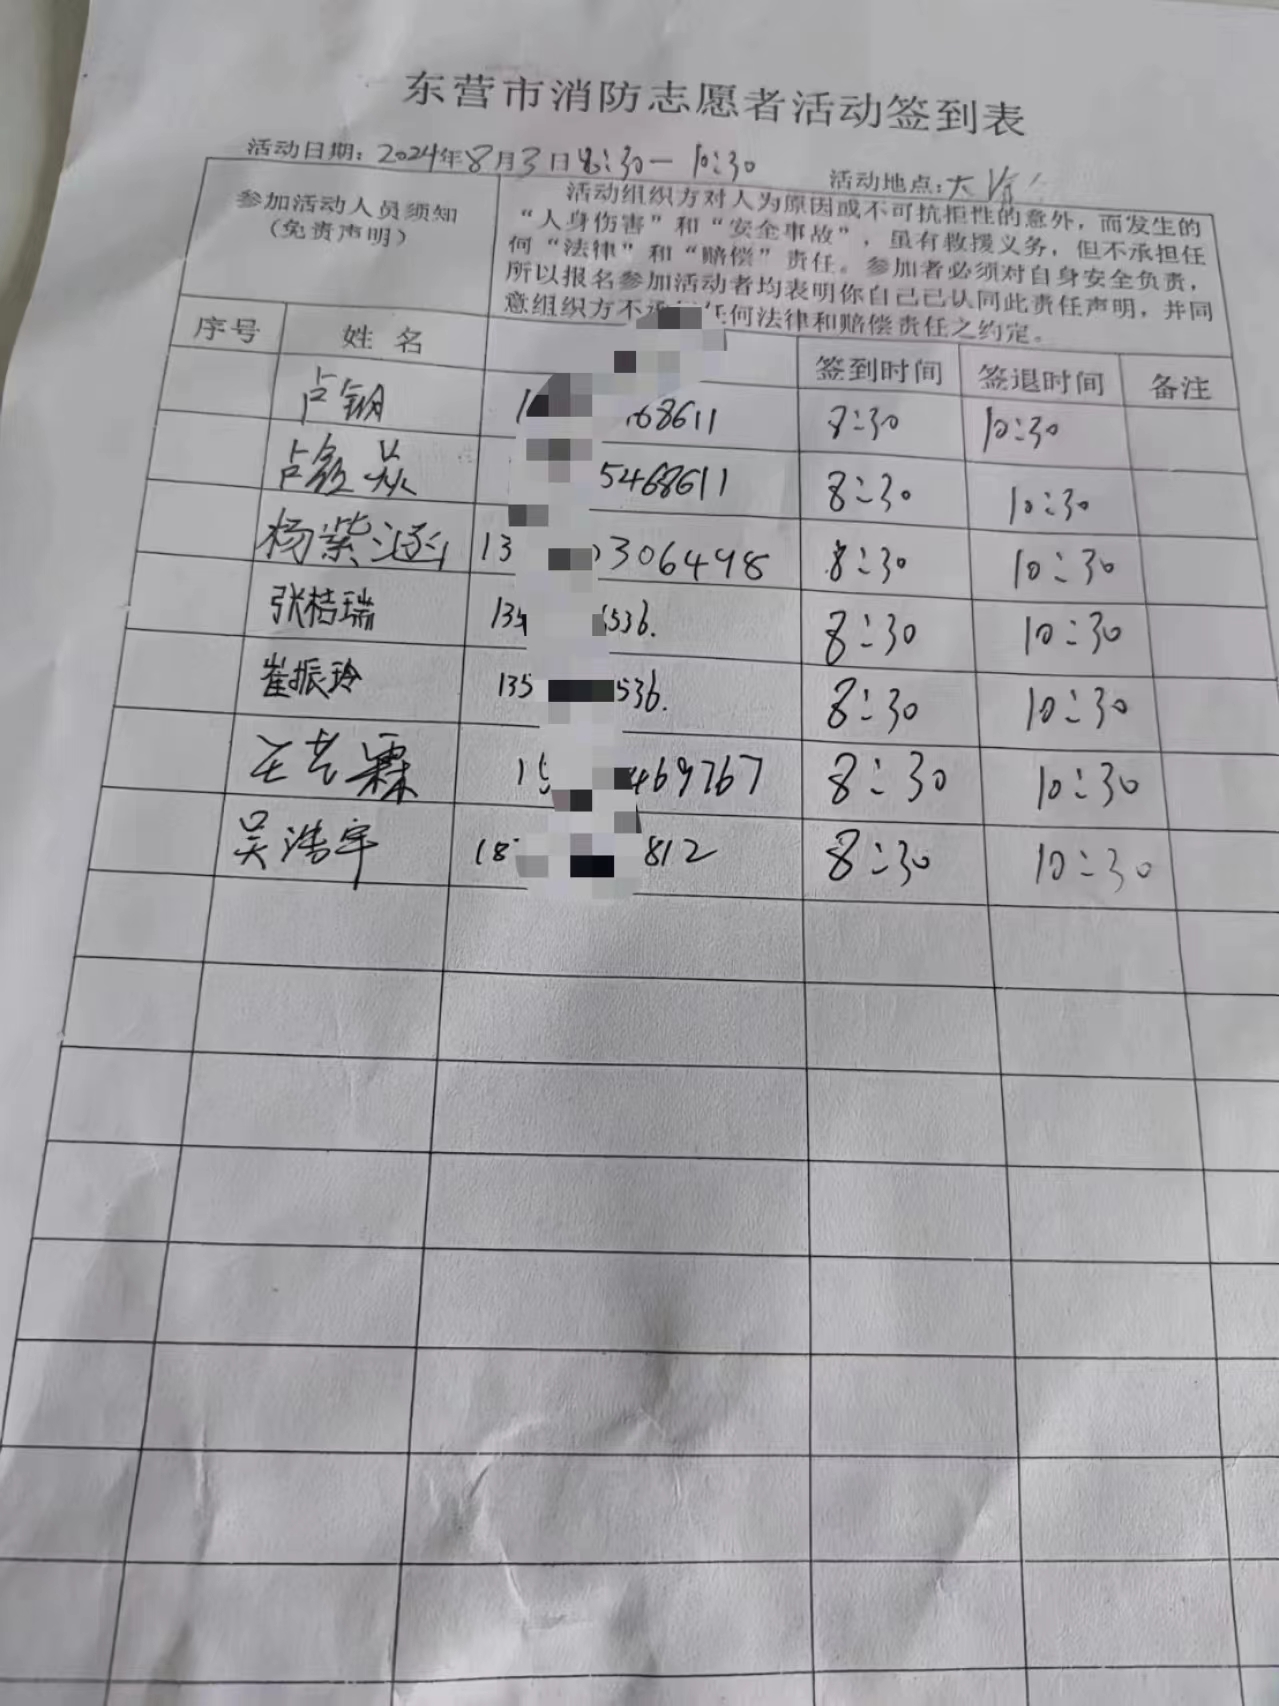 东营市消防志愿者活动签到表
活动日期：2024年8月3日8:30—10:30 活动地点：大
参加活动人员须知
（免责声明）
活动组织方对人为原因或不可抗拒性的意外，而发生的
“人身伤害”和“安全事故”，虽有救援义务，但不承担任
何“法律”和“赔偿”责任。参加者必须对自身安全负责，
所以报名参加活动者均表明你自己已认同此责任声明，并同
意组织方不承担任何法律和赔偿责任之约定。
序号 姓名 签到时间 签退时间 备注
1 68611 8:30 10:30
5468611 8:30 10:30
杨紫涵 13 306498 8:30 10:30
张桔瑞 135 536. 8:30 10:30
崔振玲 135 536. 8:30 10:30
王艺霖 15 469767 8:30 10:30
吴浩宇 18 812 8:30 10:30